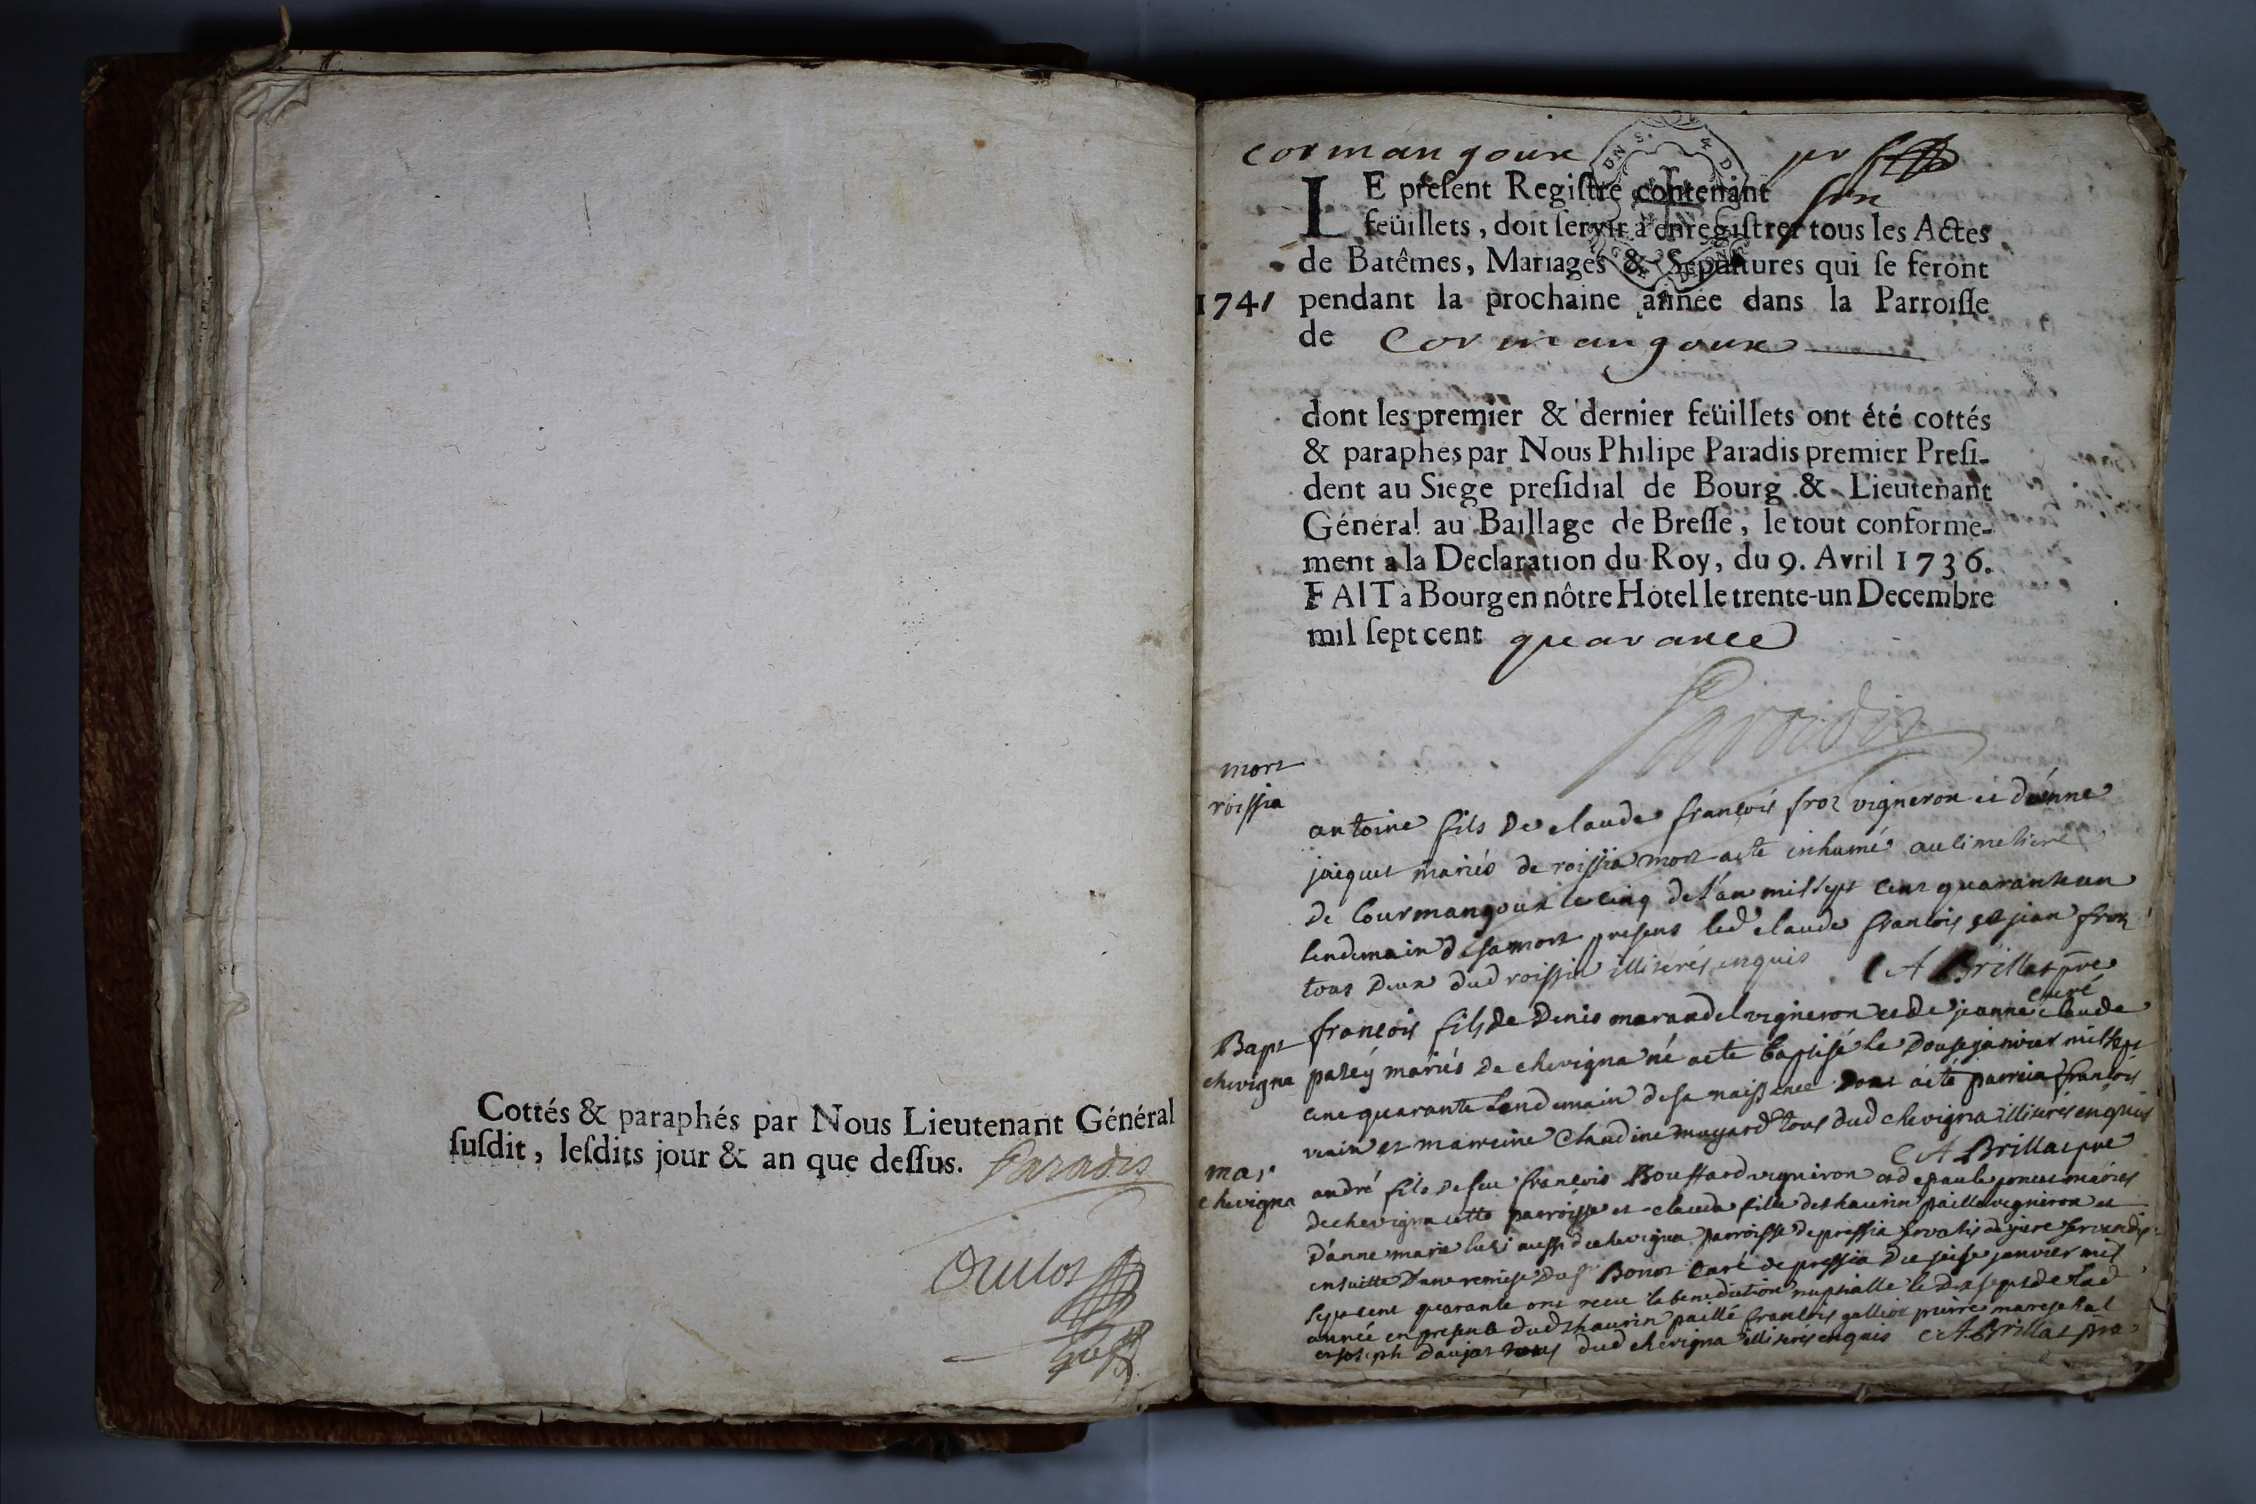 Cottés & paraphés par Nous Lieutenant Général
ſuſdit, leſdits jour & an que deſſus. Paradis
cormangoux
LE preſent Regiſtre contenant six
feüillets, doit ſervir à enregiſtrer tous les Actes
de Batêmes, Mariages & Sepultures qui ſe feront
1741 pendant la prochaine année dans la Parroiſſe
de Cormangoux
dont les premier & dernier feüillets ont été cottés
& paraphés par Nous Philipe Paradis premier Preſi-
dent au Siege preſidial de Bourg & Lieutenant
Général au Baillage de Breſſe, le tout conforme-
ment à la Declaration du Roy, du 9. Avril 1736.
FAIT à Bourg en nôtre Hôtel le trente-un Decembre
mil ſept cent quarante
Paradis
mort
roissia
antoine fils de claude françois froz vigneron et d'enne
jaiquet mariés de roissia mort a esté inhumé au cimetiere
de Courmangoux le cinq de l'an mil sept cent quarante un
lendemain de sa mort presens led claude francois et jean froz
tous deux dud roissia illiterés enquis CA Brillat pre
curé
Bapt
chevigna
francois fils de Denis marandel vigneron et de jeanne claude
mariés de chevigna né a esté baptisé le douse janvier mil sept
cent quarante lendemain de sa naissance dont a été parrain françois
et marreine Claudine mugard tous dud chevigna illiterés enquis
CA Brillat pre
mar
chevigna
andré fils de feu françois Bouffard vigneron et de paule mariés
de chevigna cette parroisse et claudа fille de thaurin paillé vigneron et
d'anne marie aussi de chevigna parroisse de pressia
ensuitte d'une remise du sr Bonot Curé de pressia du seise janvier mil
sept cent quarante ont receu la benediction nuptialle le dix sept de lad
année en presence dud thaurin paillé francois galliot pierre mareschal
et joseph daujat tous dud chevigna illiterés enquis CA Brillat pre